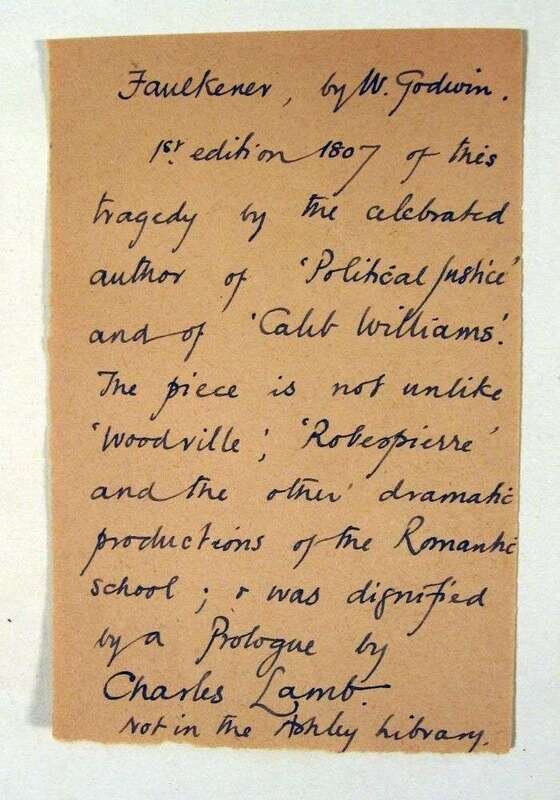 Faulkener, by W. Godwin.
1st. edition 1807 of this
tragedy by the celebrated
author of 'Political Justice'
and of 'Caleb Williams'.
The piece is not unlike
'Woodville', 'Robespierre'
and the other dramatic
productions of the Romantic
school; & was dignified
by a Prologue by
Charles Lamb.
Not in the Ashley Library.